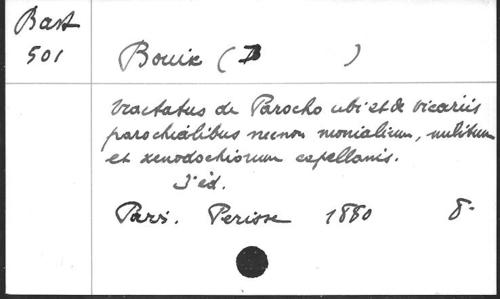 Bast
501
Bouix (D )
Tractatus de Parocho ubi et de vicariis
parochialibus necnon monialium, militum
et xenodochiorum capellanis.
3e éd.
Paris. Perisse 1880 8-